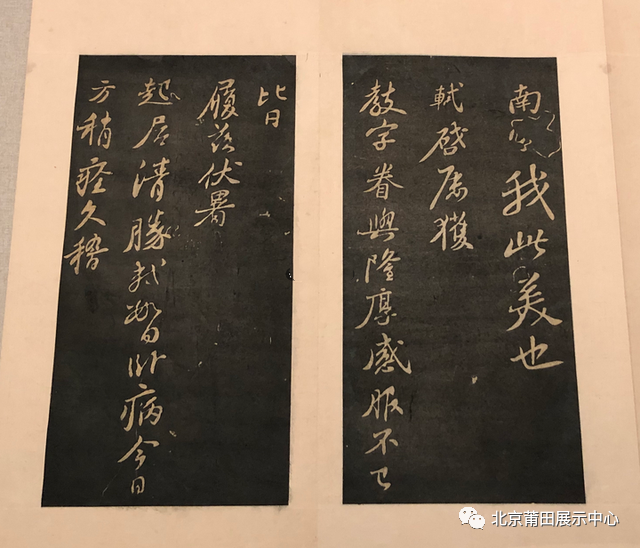 南我此美也
軾啓屢獲
教字眷與隆厚感服不已
比日
履兹伏暑
起居清勝軾數日卧病今日
方稍痊久稽
北京莆田展示中心